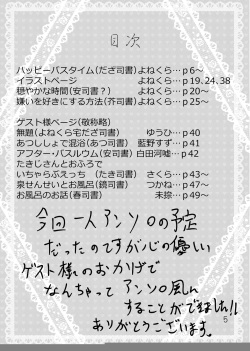 目次
ハッピーバスタイム(だざ司書)よねくら…p6～
イラストページ よねくら…p19.24.38
穏やかな時間(安司書?) よねくら…p20～
嫌いを好きにする方法(芥司書)よねくら…p25～
ゲスト様ページ(敬称略)
無題(よねくら宅だざ司書) ゆうひ…p40
あつししょで混浴(あつ司書) 藍野すず…p41
アフター・バスルウム(安司書)白田河嘘…p42
たきじさんとおふろで
いちゃらぶえっち (たき司書) さくら…p43～
泉せんせいとお風呂(鏡司書) つかね…p47～
お風呂のお話(春司書) 未捺…p49～
今回一人アンソロの予定
だったのですが心の優しい
ゲスト様のおかげで
なんちゃってアンソロ風に
することができました!!
ありがとうございます。
5